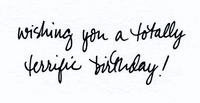 wishing you a totally
terrific birthday!